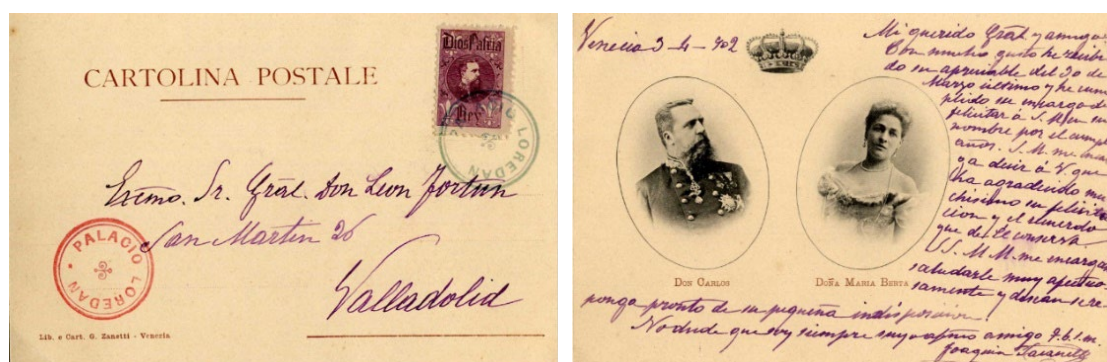 CARTOLINA POSTALE
Dios Patria
Rey
PALACIO LOREDAN
Exmo. Sr. Gral. Don Leon Fortun
San Martin 26
Valladolid
PALACIO LOREDAN
Lib. e Cart. G. Zanetti - Venezia
Venecia 3-4-902
Mi querido Gral y amigo
Con mucho gusto he recibi
do su apreciable del 30 de
Marzo ultimo y he cum
plido su encargo de
felicitar á S.M. en su
nombre por el cumple
años. S.M. me encar
ga decir á V. que
ha agradecido mu
chisimo su felicita
cion y el recuerdo
que de El conserva.
SS.MM. me encargan
saludarle muy afectuo
samente y desean se re
ponga pronto de su pequeña indisposicion.
No dude que soy siempre suyo afmo amigo q.b.s.m.
Joaquin
DON CARLOS
DOÑA MARIA BERTA